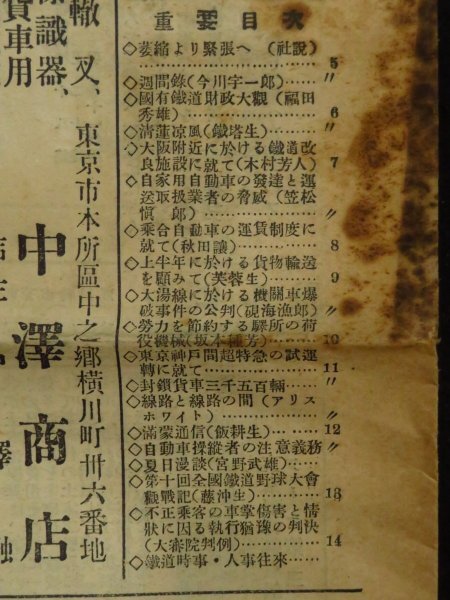 重要目次
◇萎縮より緊張へ(社說)……5
◇週間錄(今川宇一郎)……〃
◇國有鐵道財政大觀(福田
秀雄)……6
◇淸蓮凉風(鐵塔生)……〃
◇大阪附近に於ける鐵道改
良施設に就て(木村芳人)7
◇自家用自動車の發達と運
送取扱業者の脅威(笠松
愼郞)……〃
◇乘合自動車の運賃制度に
就て(秋田讓)……8
◇上半年に於ける貨物輸送
を顧みて(芙蓉生)……9
◇大湯線に於ける機關車爆
破事件の公判(硯海漁郞)〃
◇勞力を節約する驛所の荷
役機械(坂本種芳)……10
◇東京神戶間超特急の試運
轉に就て……11
◇封鎖貨車三千五百輛……〃
◇線路と線路の間(アリス
ホワイト)……〃
◇滿蒙通信(飯耕生)……12
◇自動車操縱者の注意義務〃
◇夏日漫談(宮野武雄)……〃
◇第十回全國鐵道野球大會
觀戰記(藤沖生)……13
◇不正乘客の車掌傷害と情
狀に因る執行猶豫の判決
(大審院判例)……14
◇鐵道時事・人事往來……
東京市本所區中之鄕橫川町卅六番地
中澤商店
轍叉、
識器、
貨車用